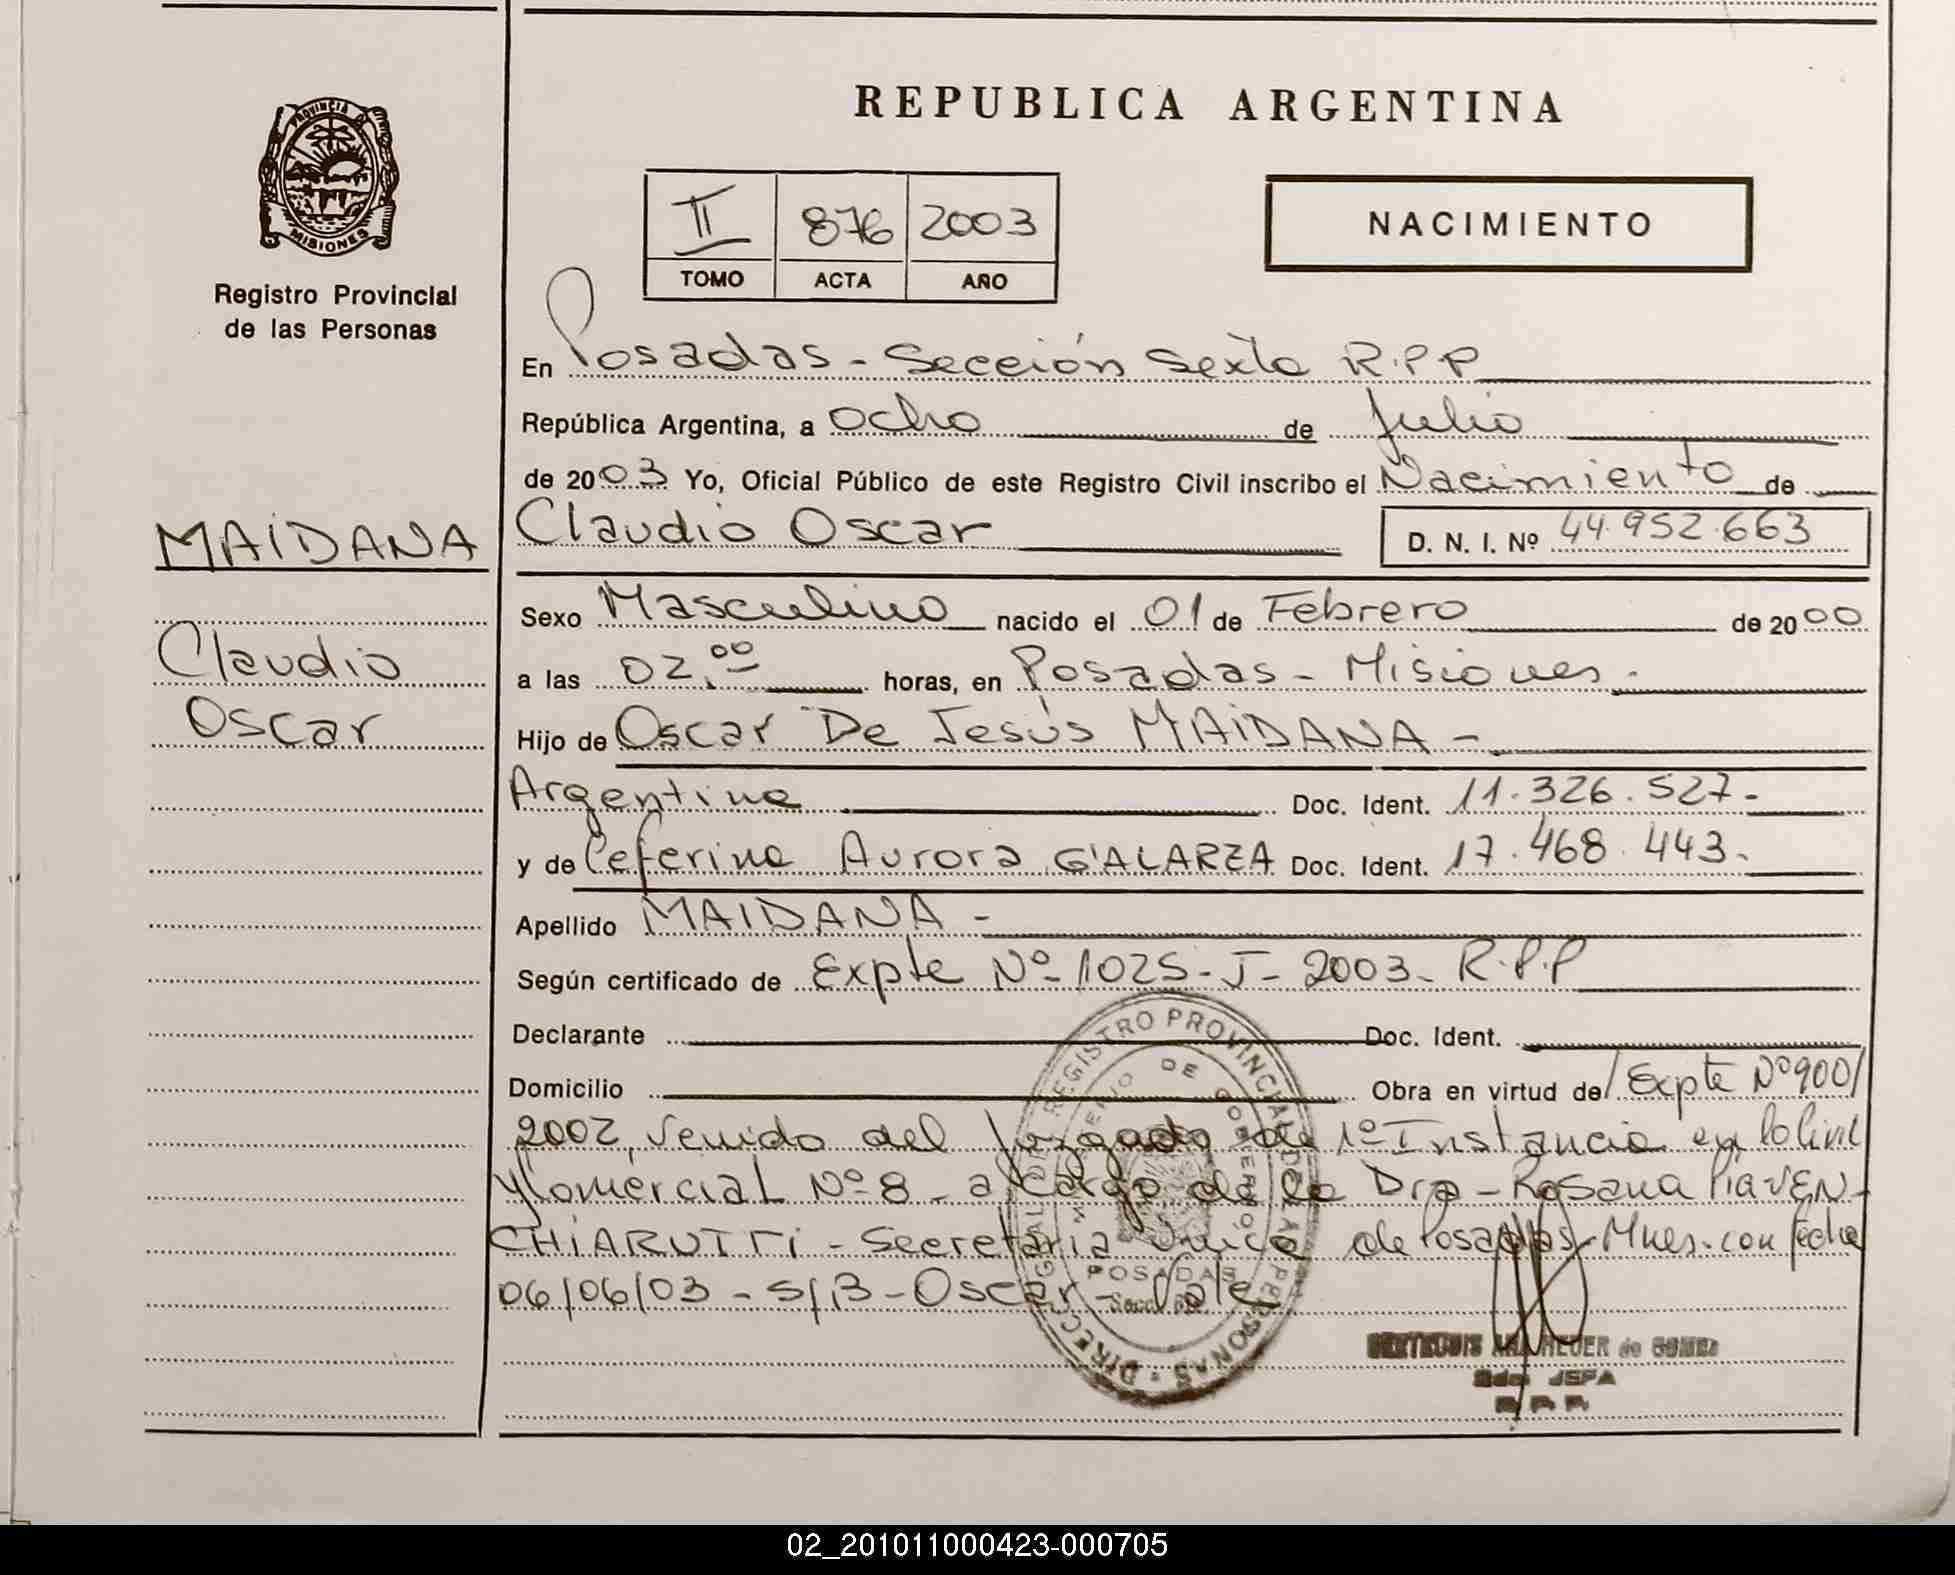 REPUBLICA ARGENTINA
PROVINCIA D
MISIONES
Registro Provincial
de las Personas
II 876 2003
TOMO ACTA AÑO
NACIMIENTO
En Posadas - Sección Sexta R.P.P
República Argentina, a ocho de Julio
de 2003 Yo, Oficial Público de este Registro Civil inscribo el Nacimiento de
MAIDANA
Claudio
Oscar
Claudio Oscar D. N. I. Nº 44.952.663
Sexo Masculino nacido el 01 de Febrero de 2000
a las 02.00 horas, en Posadas - Misiones.
Hijo de Oscar De Jesús MAIDANA -
Argentina Doc. Ident. 11.326.527-
y de Ceferina Aurora GALARZA Doc. Ident. 17.468.443-
Apellido MAIDANA -
Según certificado de Expte Nº 1025-J-2003- R.P.P
Declarante Doc. Ident.
Domicilio Obra en virtud de/Expte Nº 900/
2002, venido del Juzgado de 1º Instancia en lo Civil
y Comercial Nº 8 - a cargo de la Dra - Rosana Pia VEN-
CHIARUTTI - Secretaria Unica de Posadas - Mnes. con fecha
06/06/03 - S/B - Oscar - Vale
DIRECC GRAL DE REGISTRO PROVINCIAL DE LAS PERSONAS
DE GOBIERNO
POSADAS
de GOMEZ
JEFA
R.P.P.
02_201011000423-000705